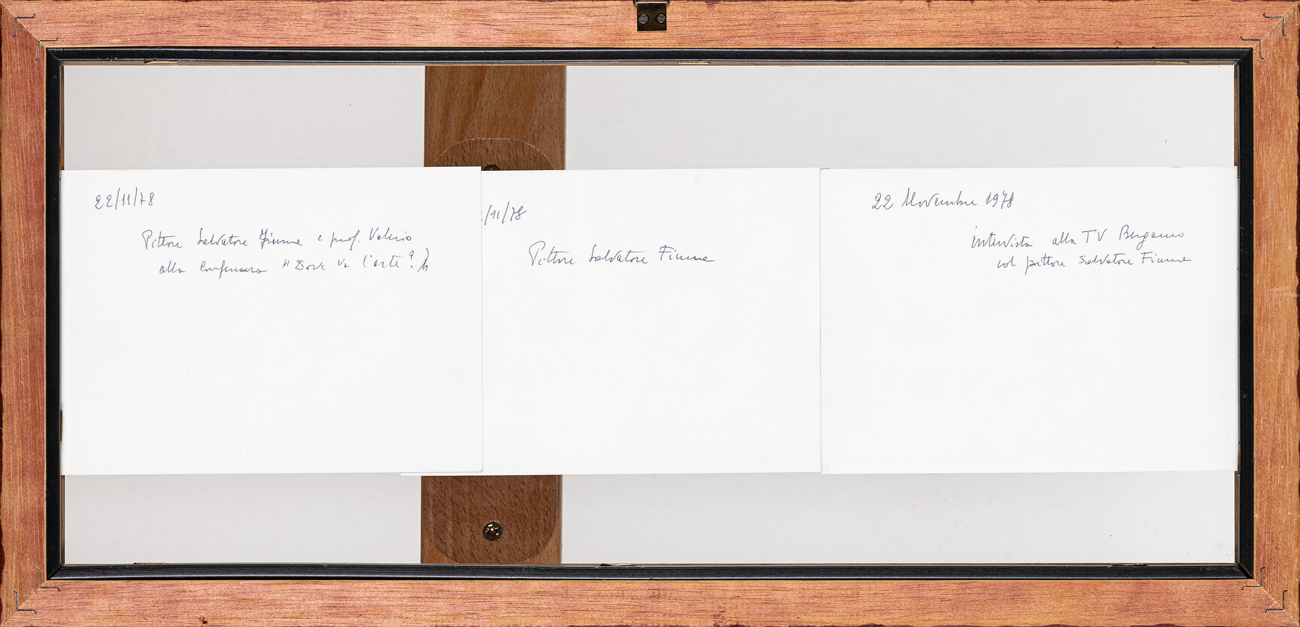 22/11/78
Pittore Salvatore Fiume e prof. Valerio
alla conferenza "Dove va l'arte?"
/11/78
Pittore Salvatore Fiume
22 Novembre 1978
intervista alla TV Bergamo
col pittore Salvatore Fiume